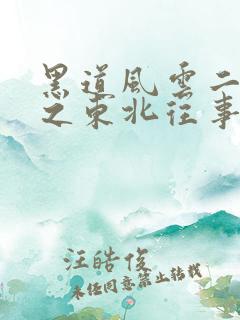 黑道風雲二
之東北往事
汪皓俊
未经同意禁止转载